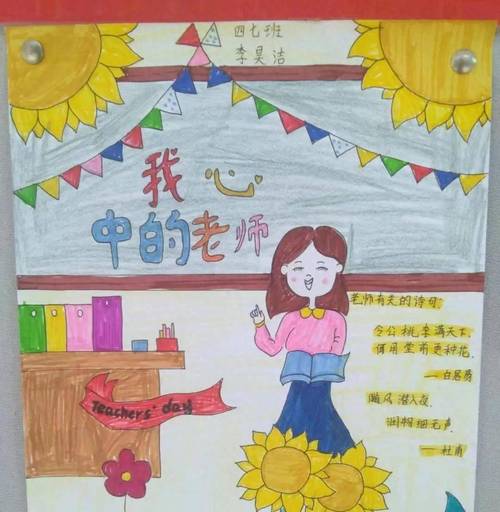 四七班
李昊洁
我心
中的老师
老师有关的诗句:
令公桃李满天下,
何用堂前更种花。
——白居易
随风潜入夜,
润物细无声
——杜甫
Teachers' day